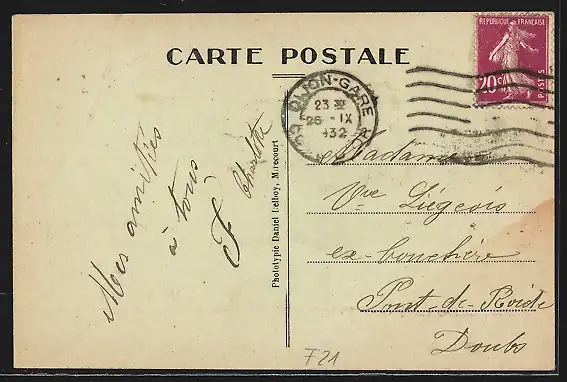 CARTE POSTALE
REPUBLIQUE FRANÇAISE
20c
POSTES
DIJON-GARE
23 30
26 - IX
32
Mes amitiés
à tous
F Charlotte
Phototypie Daniel Delboy, Mirecourt
Madame
Vve Liégeois
ex-bouchère
Pont-de-Roide
Doubs
F21